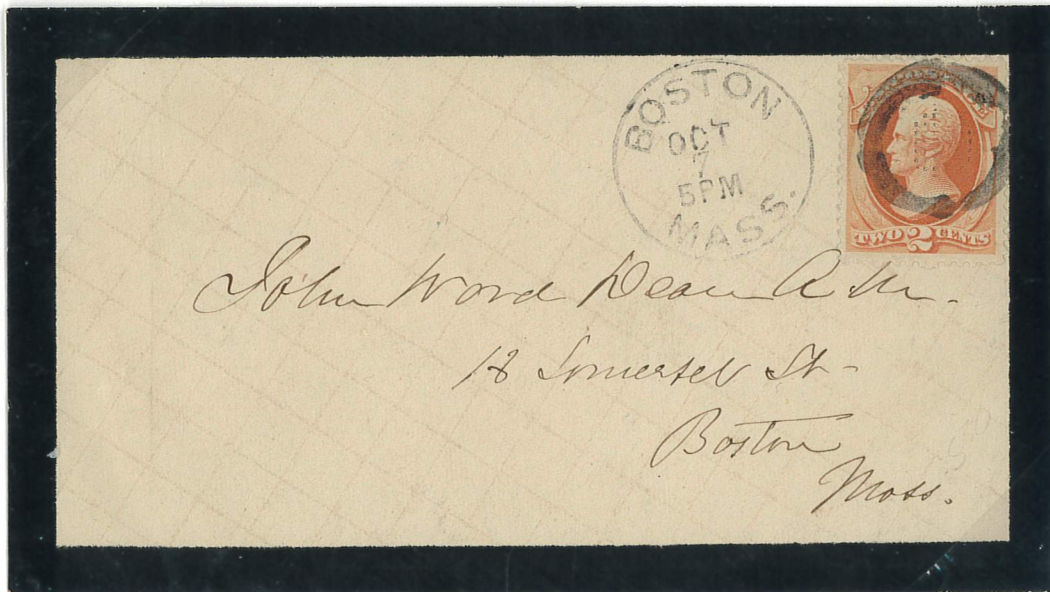 BOSTON
OCT
7
5PM
MASS.
TWO 2 CENTS
John Ward Dean A.M.
18 Somerset St-
Boston
Mass.